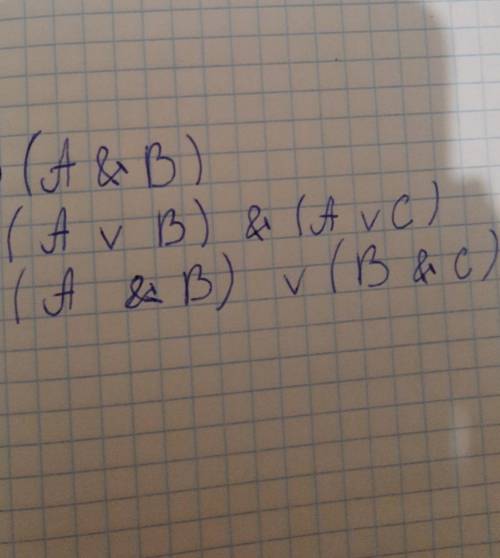 (A & B)
(A v B) & (A v C)
(A & B) v (B & C)